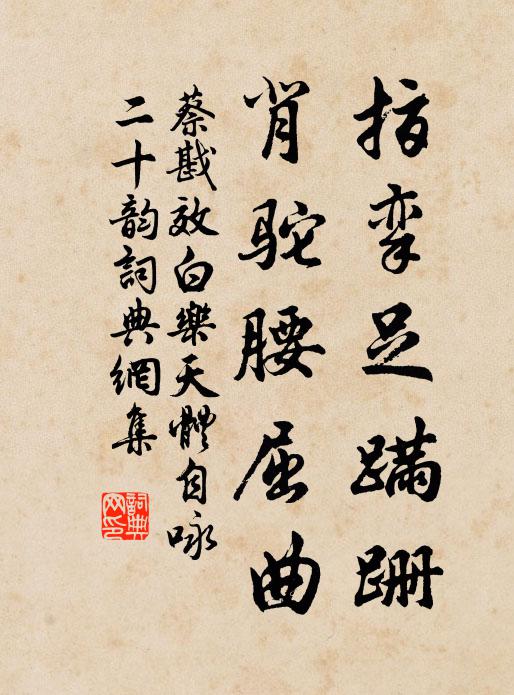 指挛足蹒跚
背驼腰屈曲
蔡戡效白樂天體自咏
二十韵詞典網集
詞典网印